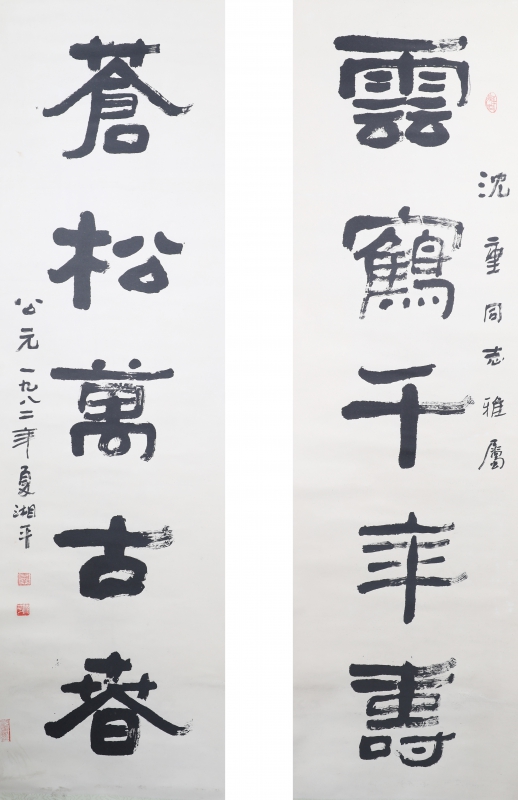 雲鶴千年壽
沈重同志雅屬
蒼松萬古春
公元一九八二年夏湘平